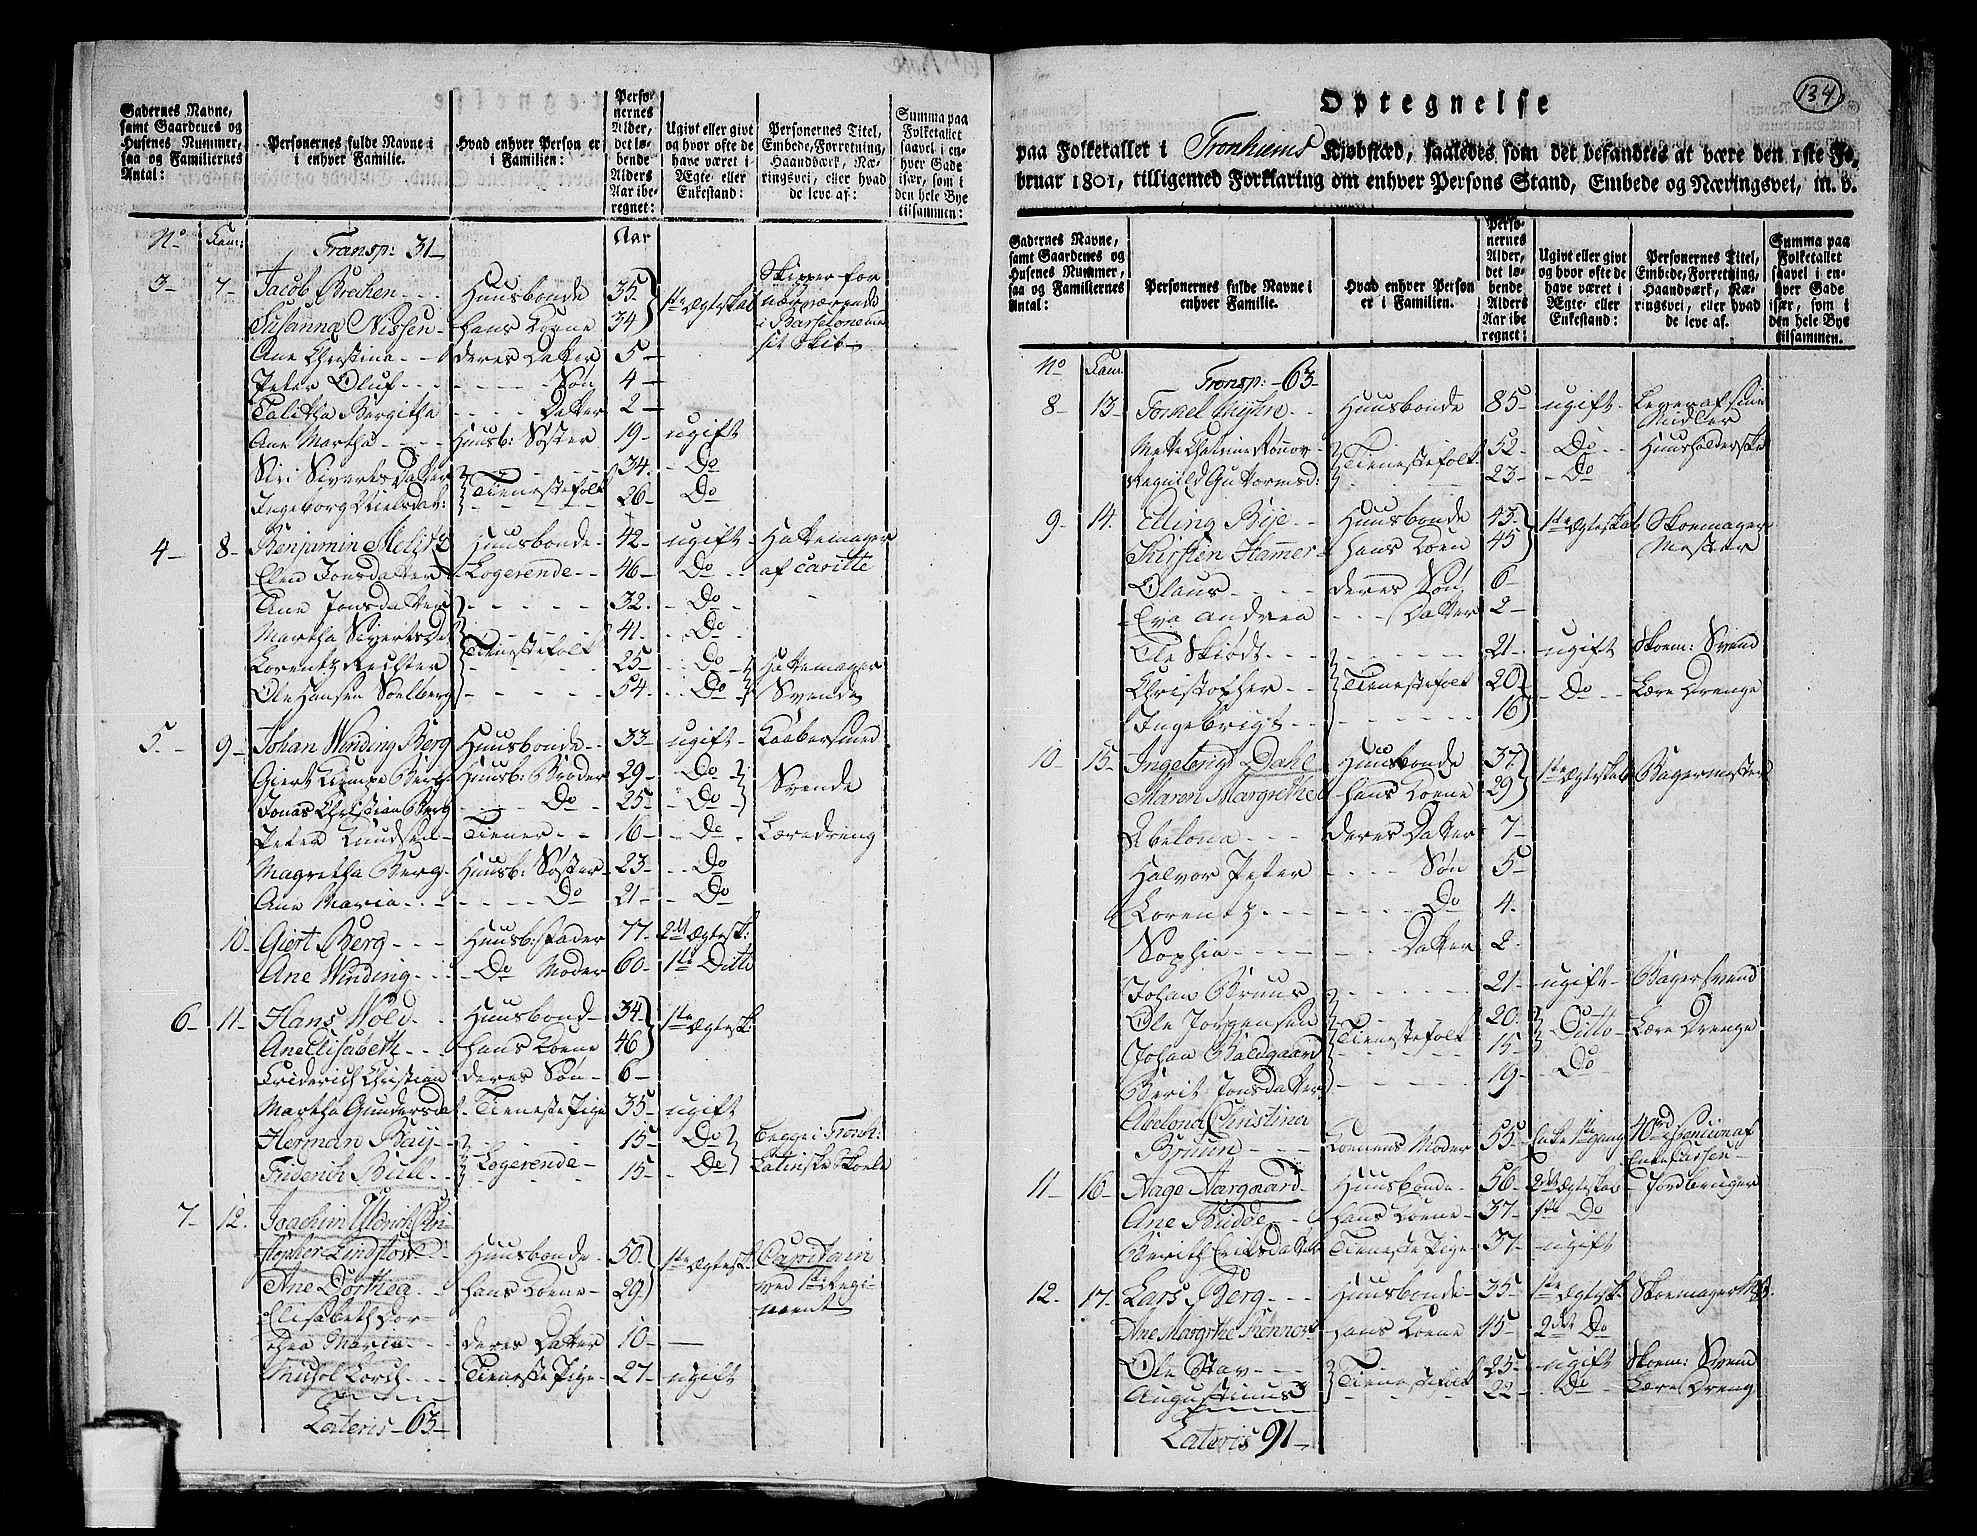 Gadernes Navne, samt Gaardenes og Husenes Nummer, saa og Familiernes Antal:
Personernes fulde Navne i i enhver Familie.
Hvad enhver Person er i Familien:
Persornernes Alder, det løbende Alders Aar iberegnet:
Ugivt eller givt og hvor ofte de have været i Ægte- eller Enkestand:
Personernes Titel, Embede, Forretning, Haandværk, Næringsvei, eller hvad de leve af:
Summa paa Folketallet saavel i enhver Gade især, som i den hele Bye tilsammen:
No Fam: Transp: 31 Aar
3 - 7 - Jacob Brechen - Huusbonde 35 1ste Ægteskab Skipper for nærværende i Barselone med sit Skib
Susanna Nissen - hans Kone 34
Ane Christina - deres Datter 5
Peter Oluf - Søn 4
Talitha Bergitha - Datter 2
Ane Martha - Huusb: Søster 19 - ugift
Siri Siverts Datter Tienestefolk 34 - Do
Ingeborg Nielsdat: 26 - Do
4 - 8 - Benjamin Huusbonde 42 - ugift - Hattemager
Elen Jonsdatter - Logerende - 46 - Do - af
Ane Jonsdatter 32 - Do
Martha Siverts D. Tienestefolk 41 - Do
Lorentz Rechter 25 - Do Hattemager
Ole Hansen Soelberg 54 - Do Svende
5 - 9 - Johan Winding Berg Huusbonde - 33 - ugift - Kaabersmed
Giert Kiempe Berg Huusb: Broder 29 - Do Svende
Jonas Christian Berg Do 25 - Do
Peter Knudsen - Tiener - 16 - Do - Læredreng
Magretha Berg - Huusb: Søster - 23 - Do
Ane Maria - Do 21 - Do
10 - Giert Berg - Huusb: Fader 77 - 2det Ægtesk:
Ane Winding - Do Moder 60 - 1ste Ditto
6 - 11 - Hans Wold - Huusbond - 34 1ste Ægtesk
Ane Elisabeth - hans Kone 46
Friderich Christian deres Søn - 6
Martha Gundersdat - Tieneste Pige 35 - ugift
Herman Bay - Logerende 15 - Do begge i Tronh:
Friderich Bull - 15 - Do Latinske Skole
7 - 12. Joachim Ulrich Chri-
stopher Lindstow Huusbonde - 50 1ste Ægtesk. Capitain
Ane Dorthea - hans Kone - 29 ved 1ste Regi-
Elisabeth Dor- ment
thea Maria - deres Datter 10
Michol Lorch - Tieneste Pige - 27 - ugift
Lateris - 63
134
Optegnelse
paa Folketallet i Tronhiems Kiøbstæd, saaledes som det befandtes at være den 1ste Fe-
bruar 1801, tilligemed Forklaring om enhver Persons Stand, Embede og Næringsvei, m. v.
Gadernes Navne, samt Gaardenes og Husenes Nummer, saa og Familiernes Antal:
Personernes fulde Navne i enhver Familie.
Hvad enhver Person er i Familien.
Personernes Alder, det løbende Alders Aar iberegnet:
Ugivt eller givt og hvor ofte de have været i Ægte- eller Enkestand:
Personernes Titel, Embede, Forretning, Haandværk, Næringsvei, eller hvad de leve af.
Summa paa Folketallet saavel i enhver Gade især, som i den hele Bye tilsammen.
No Fam: Transp: 63
8 - 13 - Torkel Huusbonde 85 - ugift - Lever af sine Midler
Mette Tienestefolk 52 - Do - Huusholderske
Ragnild Guttormsd: 23 - Do
9 - 14. Elling Bye - Huusbonde 43 1ste Ægteskab Skoemager
Kirsten Hammer - hans Koen 45 Mester
Olaus - deres Søn 6
Eva Andrea - Datter 2
Ole Skiødt - 21 - ugift Skoem: Svend
Christopher - Tienestefolk 20 - Do - Lære Drenge
Ingebrigt - 16
10 - 15 - Ingebrigt Dahl Huusbonde 37 1ste Ægteskab Bagermester
Maren Margrethe hans Kone 29
Abelona - deres Datter 7
Halvor Peter Søn 5
Lorentz - Do 4.
Sophia - Datter 2.
Johan Bruus 21 - ugift - Bagersvend
Ole Jørgensen Tienestefolk 20 Ditto - Lære Drenge
Johan Baldgaard 15
Berit Jonsdatter 19 - Do
Abelona Christina
Bruun - Koenens Moder 55 Enke 1ste gang 40 rd Pension af Enke Cassen
11 - 16 - Aage Aargaard - Huusbonde - 56 - 2det Ægteskab - Jordbruger
Ane Budde - hans Kone - 37 - 1ste Do
Berith Eriksdatter Tieneste Pige - 37 - ugift
12. - 17 - Lars Berg - Huusbonde - 35 - 1ste Ægtesk. Skoemager
Ane Margrethe hans Kone 45 - 2det Do
Ole Stav - Tienestefolk 25 - ugift Skoem: Svend
Augustinus 22 - Do Lære Dreng
Lateris 91